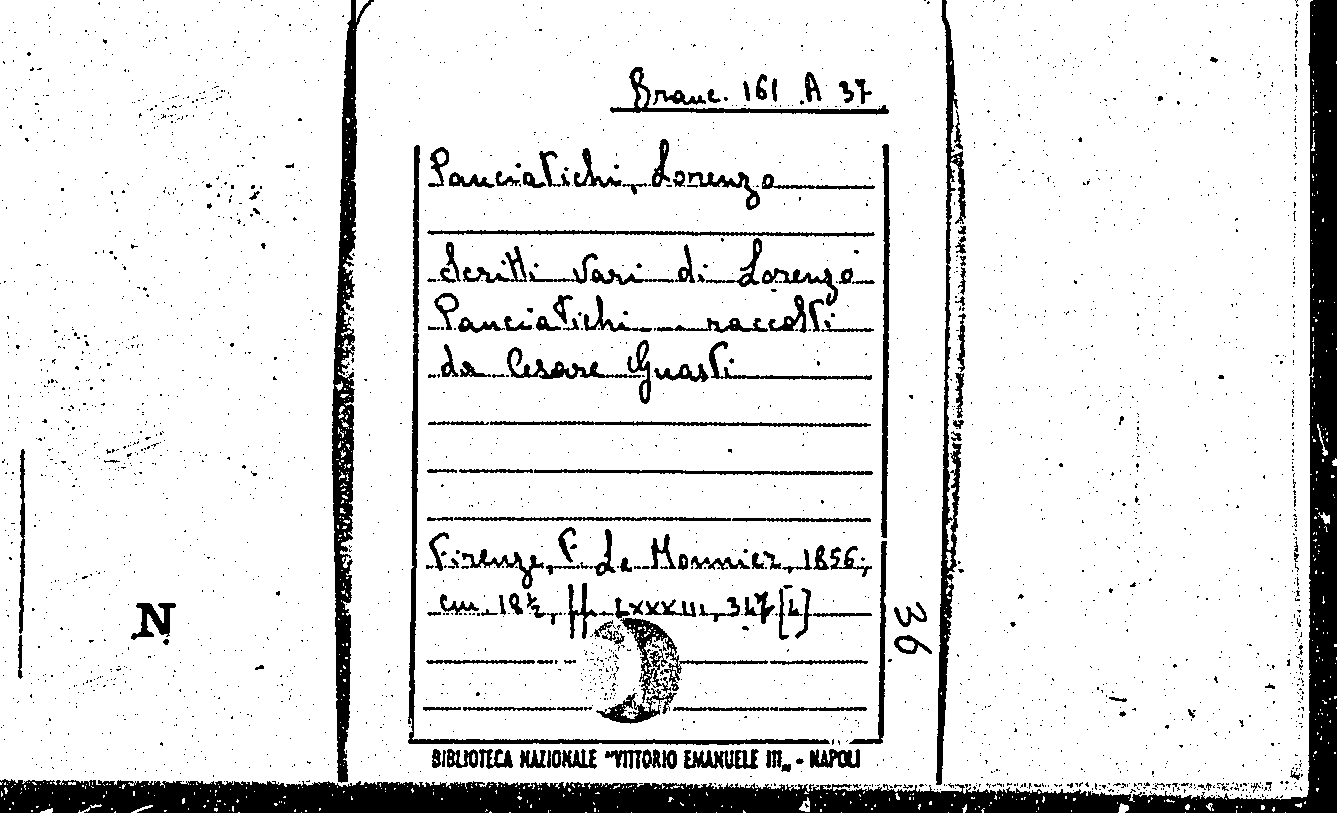 Branc. 161 A 37
Panciatichi, Lorenzo
Scritti vari di Lorenzo
Panciatichi raccolti
da Cesare Guasti
Firenze, F. Le Monnier, 1856,
cm. 18½, pp. LXXXIII, 347
36
N
BIBLIOTECA NAZIONALE "VITTORIO EMANUELE III„ - NAPOLI